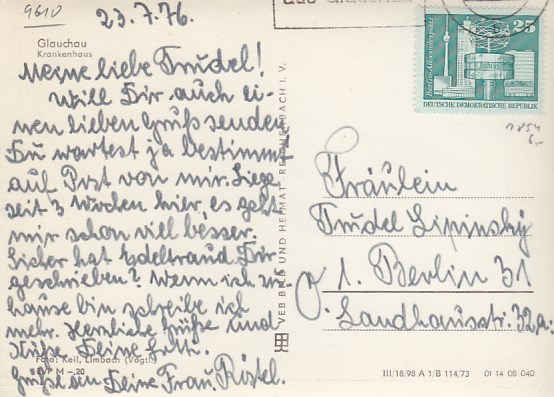 9610
23.7.76.
Glauchau
Krankenhaus
Meine liebe Trudel!
Will Dir auch ei-
nen lieben Gruß senden
Du wartest ja bestimmt
auf Post von mir. Liege
seit 3 Wochen hier, es geht
mir schon viel besser.
Sicher hat Edeltraud Dir
geschrieben? Wenn ich zu
hause bin schreibe ich
mehr. Herzliche Grüße und
Küsse Deine
Foto: Keil, Limbach (Vogtl.)
EVP M -,20
Grüße von Deine Frau. Ristel.
VEB BILD UND HEIMAT REICHENBACH I. V.
das Glauchau
Berlin-Alexanderplatz
25
DEUTSCHE DEMOKRATISCHE REPUBLIK
1854
6,-
Fräulein
Trudel Lipinsky
1. Berlin 31
Landhausstr. 32
III/18/98 A 1/B 114/73 01 14 08 040